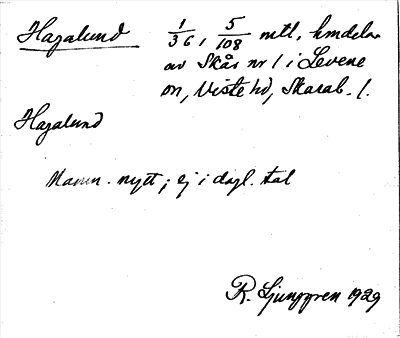 Hagalund 1/36, 5/108 mtl, hmdelar
av Skår nr 1 i Levene
sn, Viste hd, Skarab. l.
Hagalund
Namn. nytt; ej i dagl. tal
R. Ljunggren 1929